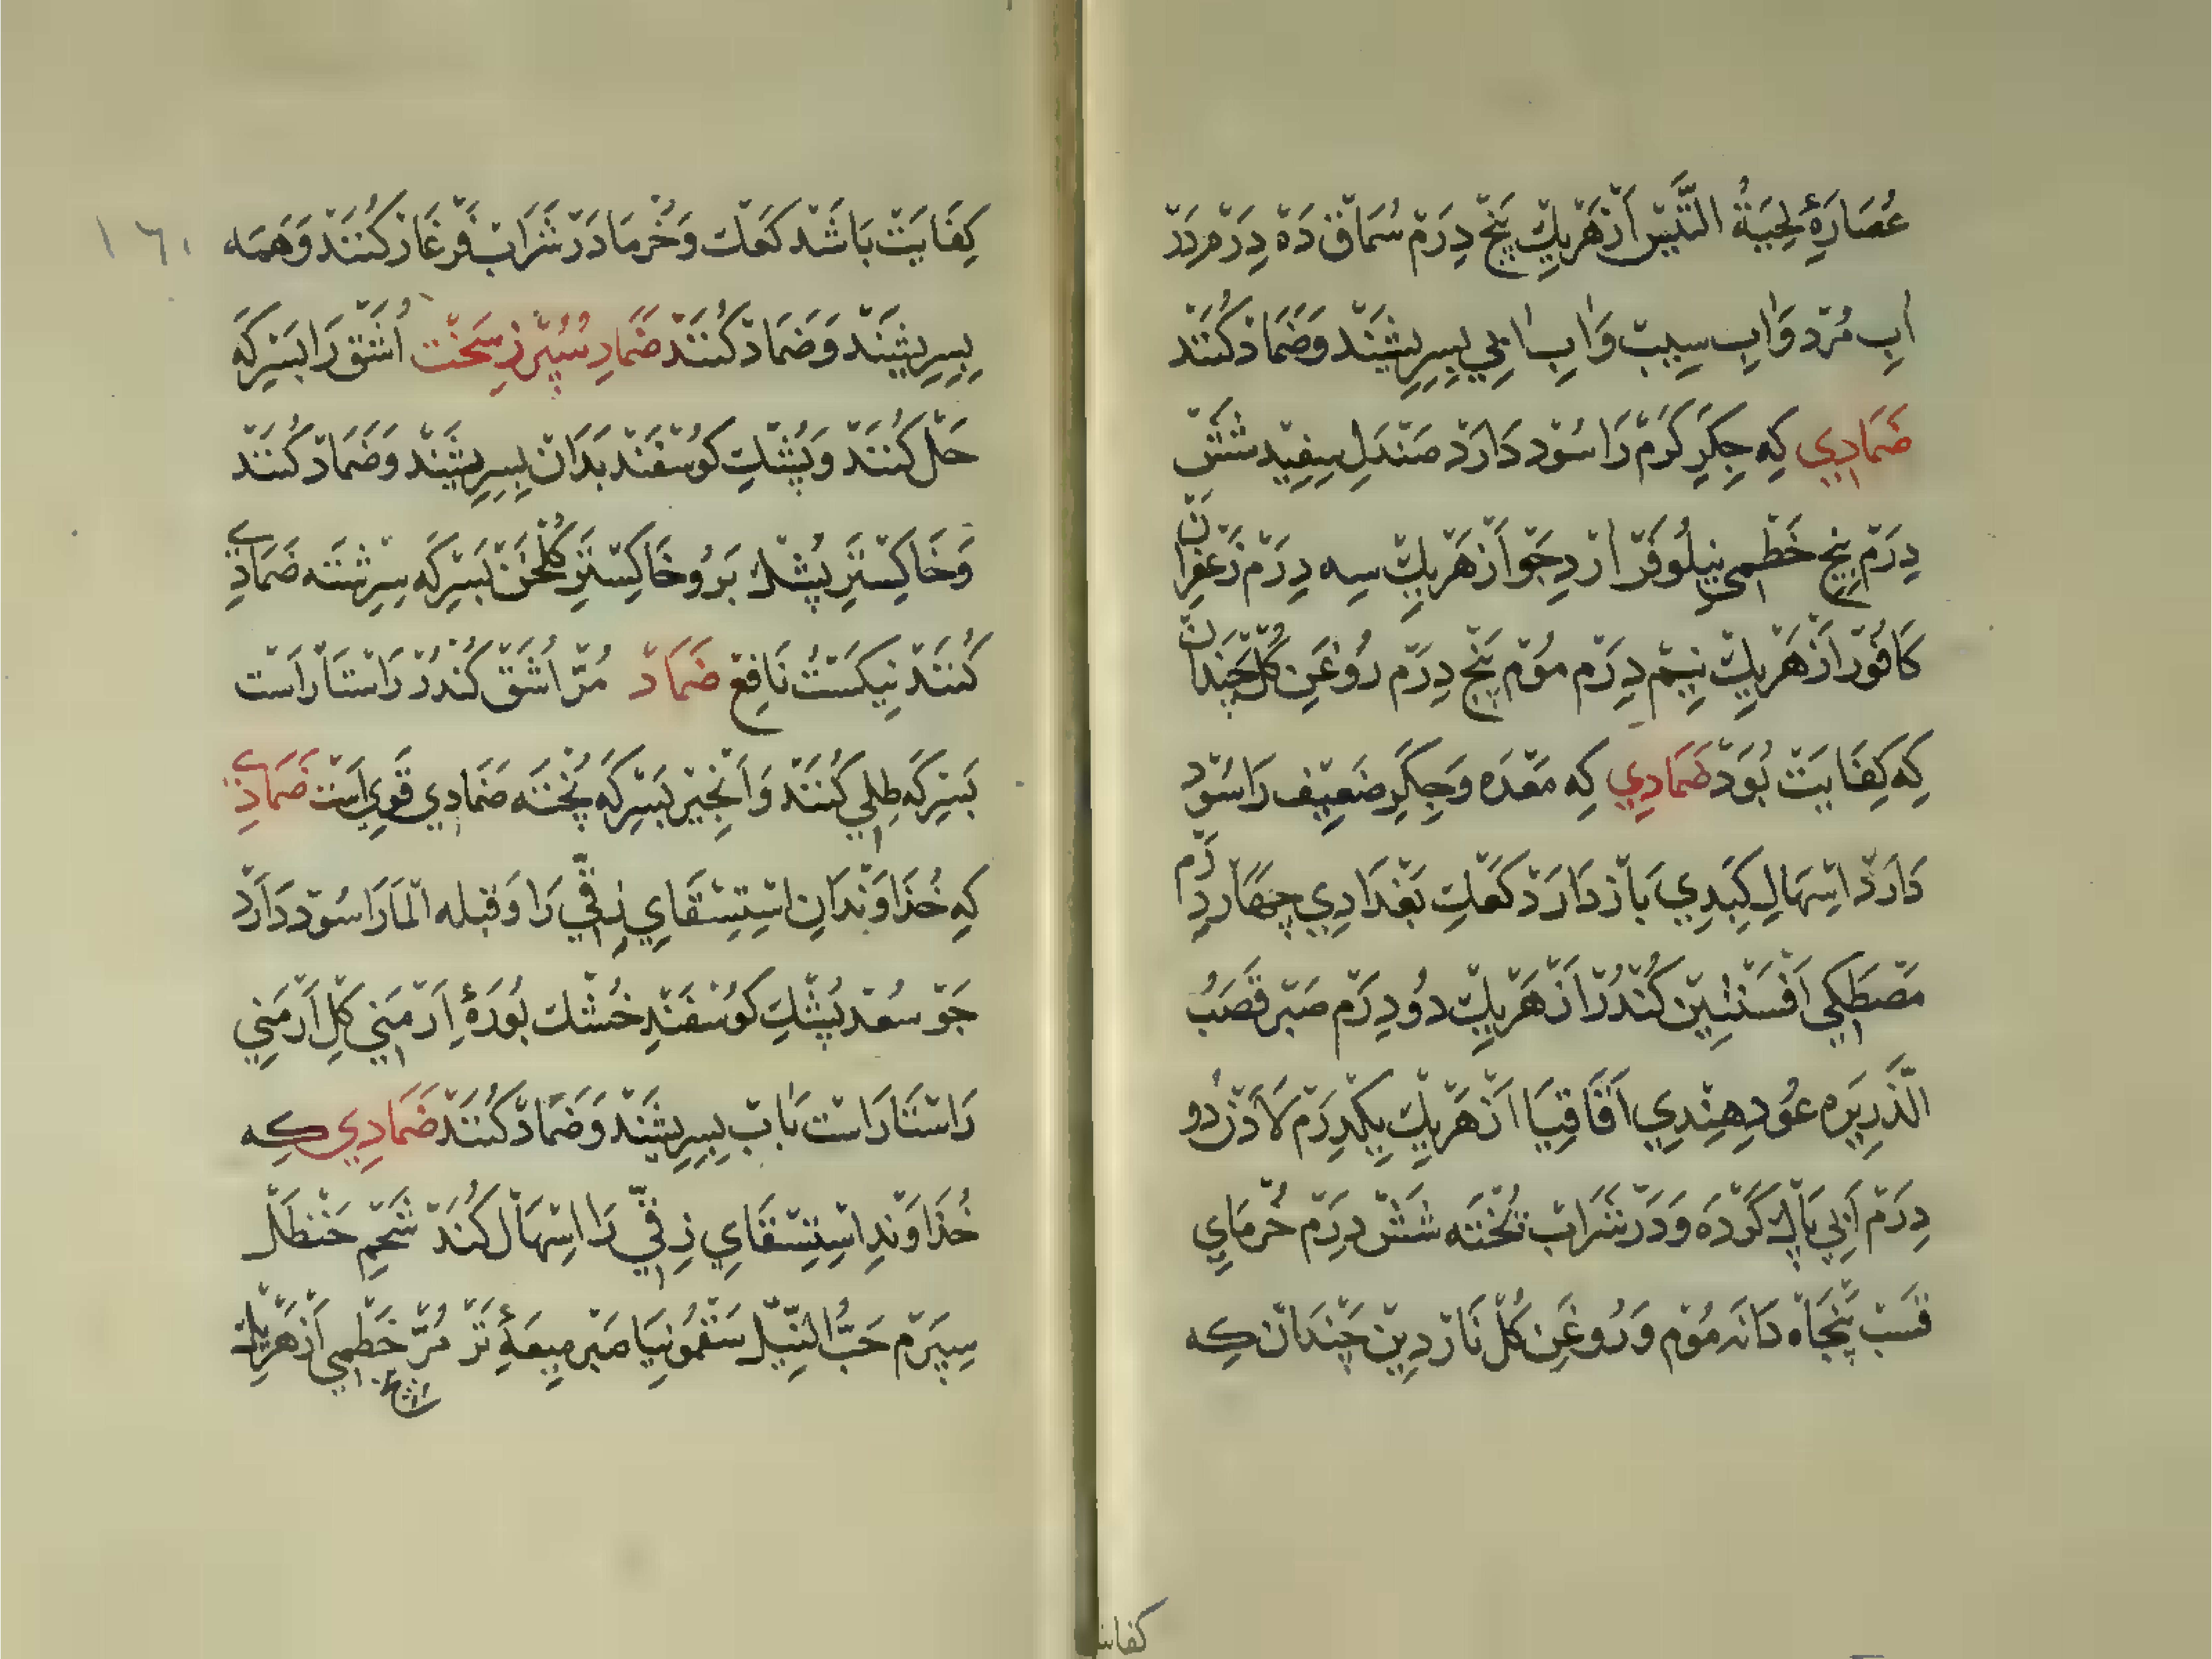 عُصَارَهٔ لِحِيَةُ التَّيْسْ اَزْ هَرْيِكْ پَنْج دِرَمْ سُمَاقْ دَهْ دِرَمْ دَرْ
آبِ مُرْد وَآبِ سِيبْ وَآبِ آبِي بِسِرِيشَنْد وَضَمَادْ كُنَنْد
ضَمَادِي كِه جِگَرِ گَرَمْ رَا سُوْد دَارَدْ صَنْدَلِ سِفِيد شَشْ
دِرَمْ بِيخِ خَطْمِي نِيلُوفَرْ آرْدِ جَوْ اَزْ هَرْيِكْ سِه دِرَمْ زَعْفَرَانْ
كَافُوْر اَزْ هَرْيِكْ نِيمْ دِرَمْ مُوْم پَنْج دِرَمْ رُوْغَنِ گُلْ چَنْدَانْ
كِه كِفَايَتْ بُوَدْ ضَمَادِي كِه مَعْدَه وَجِگَرِ ضَعِيف رَا سُوْد
دَارَدْ اِسْهَالِ كَبِدِي بَازْ دَارَدْ كَعْكِ بَغْدَادِي چَهَارْ دِرَمْ
مَصْطَكِي اَفْسَنْتِينْ كُنْدُرْ اَزْ هَرْيِكْ دُو دِرَمْ صَبْر قَصَبُ
الذَّرِيرَه عُودِ هِنْدِي اَقَاقِيَا اَزْ هَرْيِكْ يِكْدِرَمْ لَادَنْ دُو
دِرَمْ آبِي پَاكْ كَرْدَه وَدَرْ شَرَابْ پُخْتَه شَشْ دِرَمْ خُرْمَايِ
قَسْبْ پَنْجَاهْ دَانَه مُوْم وَرُوغَنِ گُلْ نَارْدِينْ چَنْدَانْ كِه
كفايت
١٦٠
كِفَايَتْ بَاشَدْ كَعْكْ وَخُرْمَا دَرْ شَرَابْ فَرْغَارْ كُنَنْد وَهَمَه
بِسِرِيشَنْد وَضَمَادْ كُنَنْد ضَمَادِ سُپُرْزِ سَخْت اُشَقْ رَا بَسِرْكَه
حَلْ كُنَنْد وَپُشْكِ گُوسْفَنْد بَدَانْ بِسِرِيشَنْد وَضَمَادْ كُنَنْد
وَخَاكِسْتَرِ پُشْكِ بَز وخَاكِسْتَرِ گُلْخَنْ بَسِرْكَه سِرِشْتَه ضَمَادِي
كُنَنْد نِيكَسْتُ نَافِعْ ضَمَادْ مُرّ اُشَقْ كُنْدُرْ رَاسْتَارَاسْت
بَسِرْكَه طِلِي كُنَنْد وَاَنْجِيرْ بَسِرْكَه پُخْتَه ضَمَادِي قَوِي اَسْت ضَمَادِي
كِه خُدَاوَنْدَانِ اِسْتِسْقَايِ زِقِّي رَا وَقيله المَا رَا سُوْد دَارَدْ
جَوْ سُعْد پُشْكِ گُوسْفَنْدِ خُشْك بُورَهٔ اِرْمَنِي گِلِ اَرْمَنِي
رَاسْتَارَاسْت بَآب بِسِرِيشَنْد وَضَمَادْ كُنَنْد ضَمَادِي كِه
خُدَاوَنْدِ اِسْتِسْقَايِ زِقِّي رَا اِسْهَالْ كُنَدْ شَحْمِ حَنْظَلْ
سِپَرَمْ حَبُّ النِّيلْ سَقْمُونِيَا صَبْر مِيعَهٔ تَرْ مُرّ خَطْمِي اَزْ هَرْيِكْ